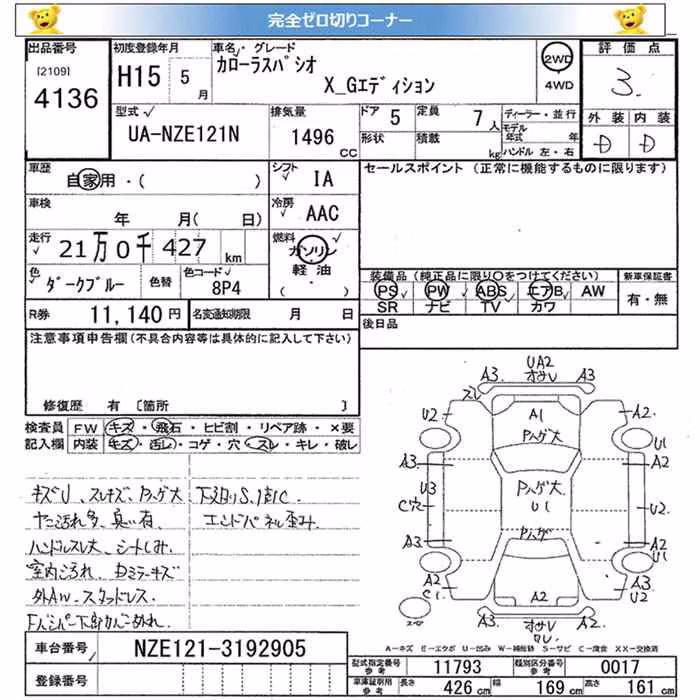 完全ゼロ切りコーナー
出品番号
[2109]
4136
初度登録年月
H15 5
月
車名・グレード
カローラスパシオ
X_Gエディション
2WD
4WD
評価点
3.
型式
UA-NZE121N
排気量
1496
CC
ドア 5
定員 7人
形状
積載
kg
ディーラー・並行
モデル
年式 年
ハンドル 左・右
外装 内装
D D
車歴
自家用・( )
シフト IA
セールスポイント(正常に機能するものに限ります)
車検 年 月( 日)
冷房 AAC
走行 21万0千427 km
燃料
ガソリン
軽油
・( )
色 ダークブルー 色替
色コード 8P4
装備品(純正品に限り○をつけてください)
PS PW ABS エアB AW
SR ナビ TV カワ
新車保証書
有・無
R券 11,140円
名変通知期限 月 日
後日品
注意事項申告欄(不具合内容等は具体的に記入して下さい)
修復歴 有 [箇所 ]
検査員 FW キズ・飛石・ヒビ割・リペア跡・×要
記入欄 内装 キズ・汚レ・コゲ・穴・スレ・キレ・破レ
キズU、スリキズ、Pハゲ大 下廻りS
ヤニ汚れ多、臭い有、 エンドパネル歪み.
ハンドルスレ大、シートしみ.
室内汚れ、ミラーキズ
外AW、スタッドレス.
Fバンパー下部
UA2
A3. A3
スレ
U2 A2.
A1
Pハゲ大
U1
A3. A2
U3
Pハゲ大
U1
C穴 U2
Pハゲ
A3 A2
U1
A2 A3
C1 U2
A2
A3 A2
A-キズ E-エクボ U-凹み W-補修跡 S-サビ C-腐食 XX-交換済
車台番号 NZE121-3192905
登録番号
型式指定番号
参考
11793
類別区分番号
参考
0017
車庫証明用
参考
長さ 426 cm
幅 169 cm
高さ 161 cm